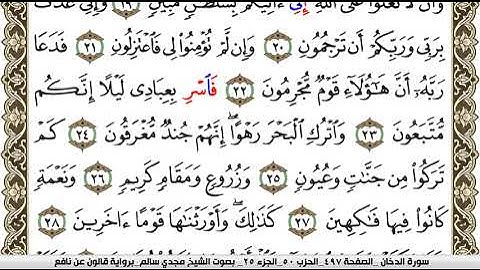 وَأَن لَّا تَعْلُوا۟ عَلَى ٱللَّهِ إِنِّىَ ءَاتِيكُم بِسُلْطَٰنٍ مُّبِينٍ ١٩ وَإِنِّى عُذْتُ
بِرَبِّى وَرَبِّكُمُۥٓ أَن تَرْجُمُونِ ٢٠ وَإِن لَّمْ تُؤْمِنُوا۟ لِى فَٱعْتَزِلُونِ ٢١ فَدَعَا
رَبَّهُۥٓ أَنَّ هَٰٓؤُلَآءِ قَوْمٌ مُّجْرِمُونَ ٢٢ فَٱسْرِ بِعِبَادِى لَيْلًا إِنَّكُم
مُّتَّبَعُونَ ٢٣ وَٱتْرُكِ ٱلْبَحْرَ رَهْوًا إِنَّهُمْ جُندٌ مُّغْرَقُونَ ٢٤ كَمْ
تَرَكُوا۟ مِن جَنَّٰتٍ وَعُيُونٍ ٢٥ وَزُرُوعٍ وَمَقَامٍ كَرِيمٍ ٢٦ وَنَعْمَةٍ
كَانُوا۟ فِيهَا فَٰكِهِينَ ٢٧ كَذَٰلِكَ وَأَوْرَثْنَٰهَا قَوْمًا ءَاخَرِينَ ٢٨
سورة الدخان _الصفحة ٤٩٧_الحزب ٥٠_الجزء ٢٥_ بصوت الشيخ مجدي سالم_برواية قالون عن نافع